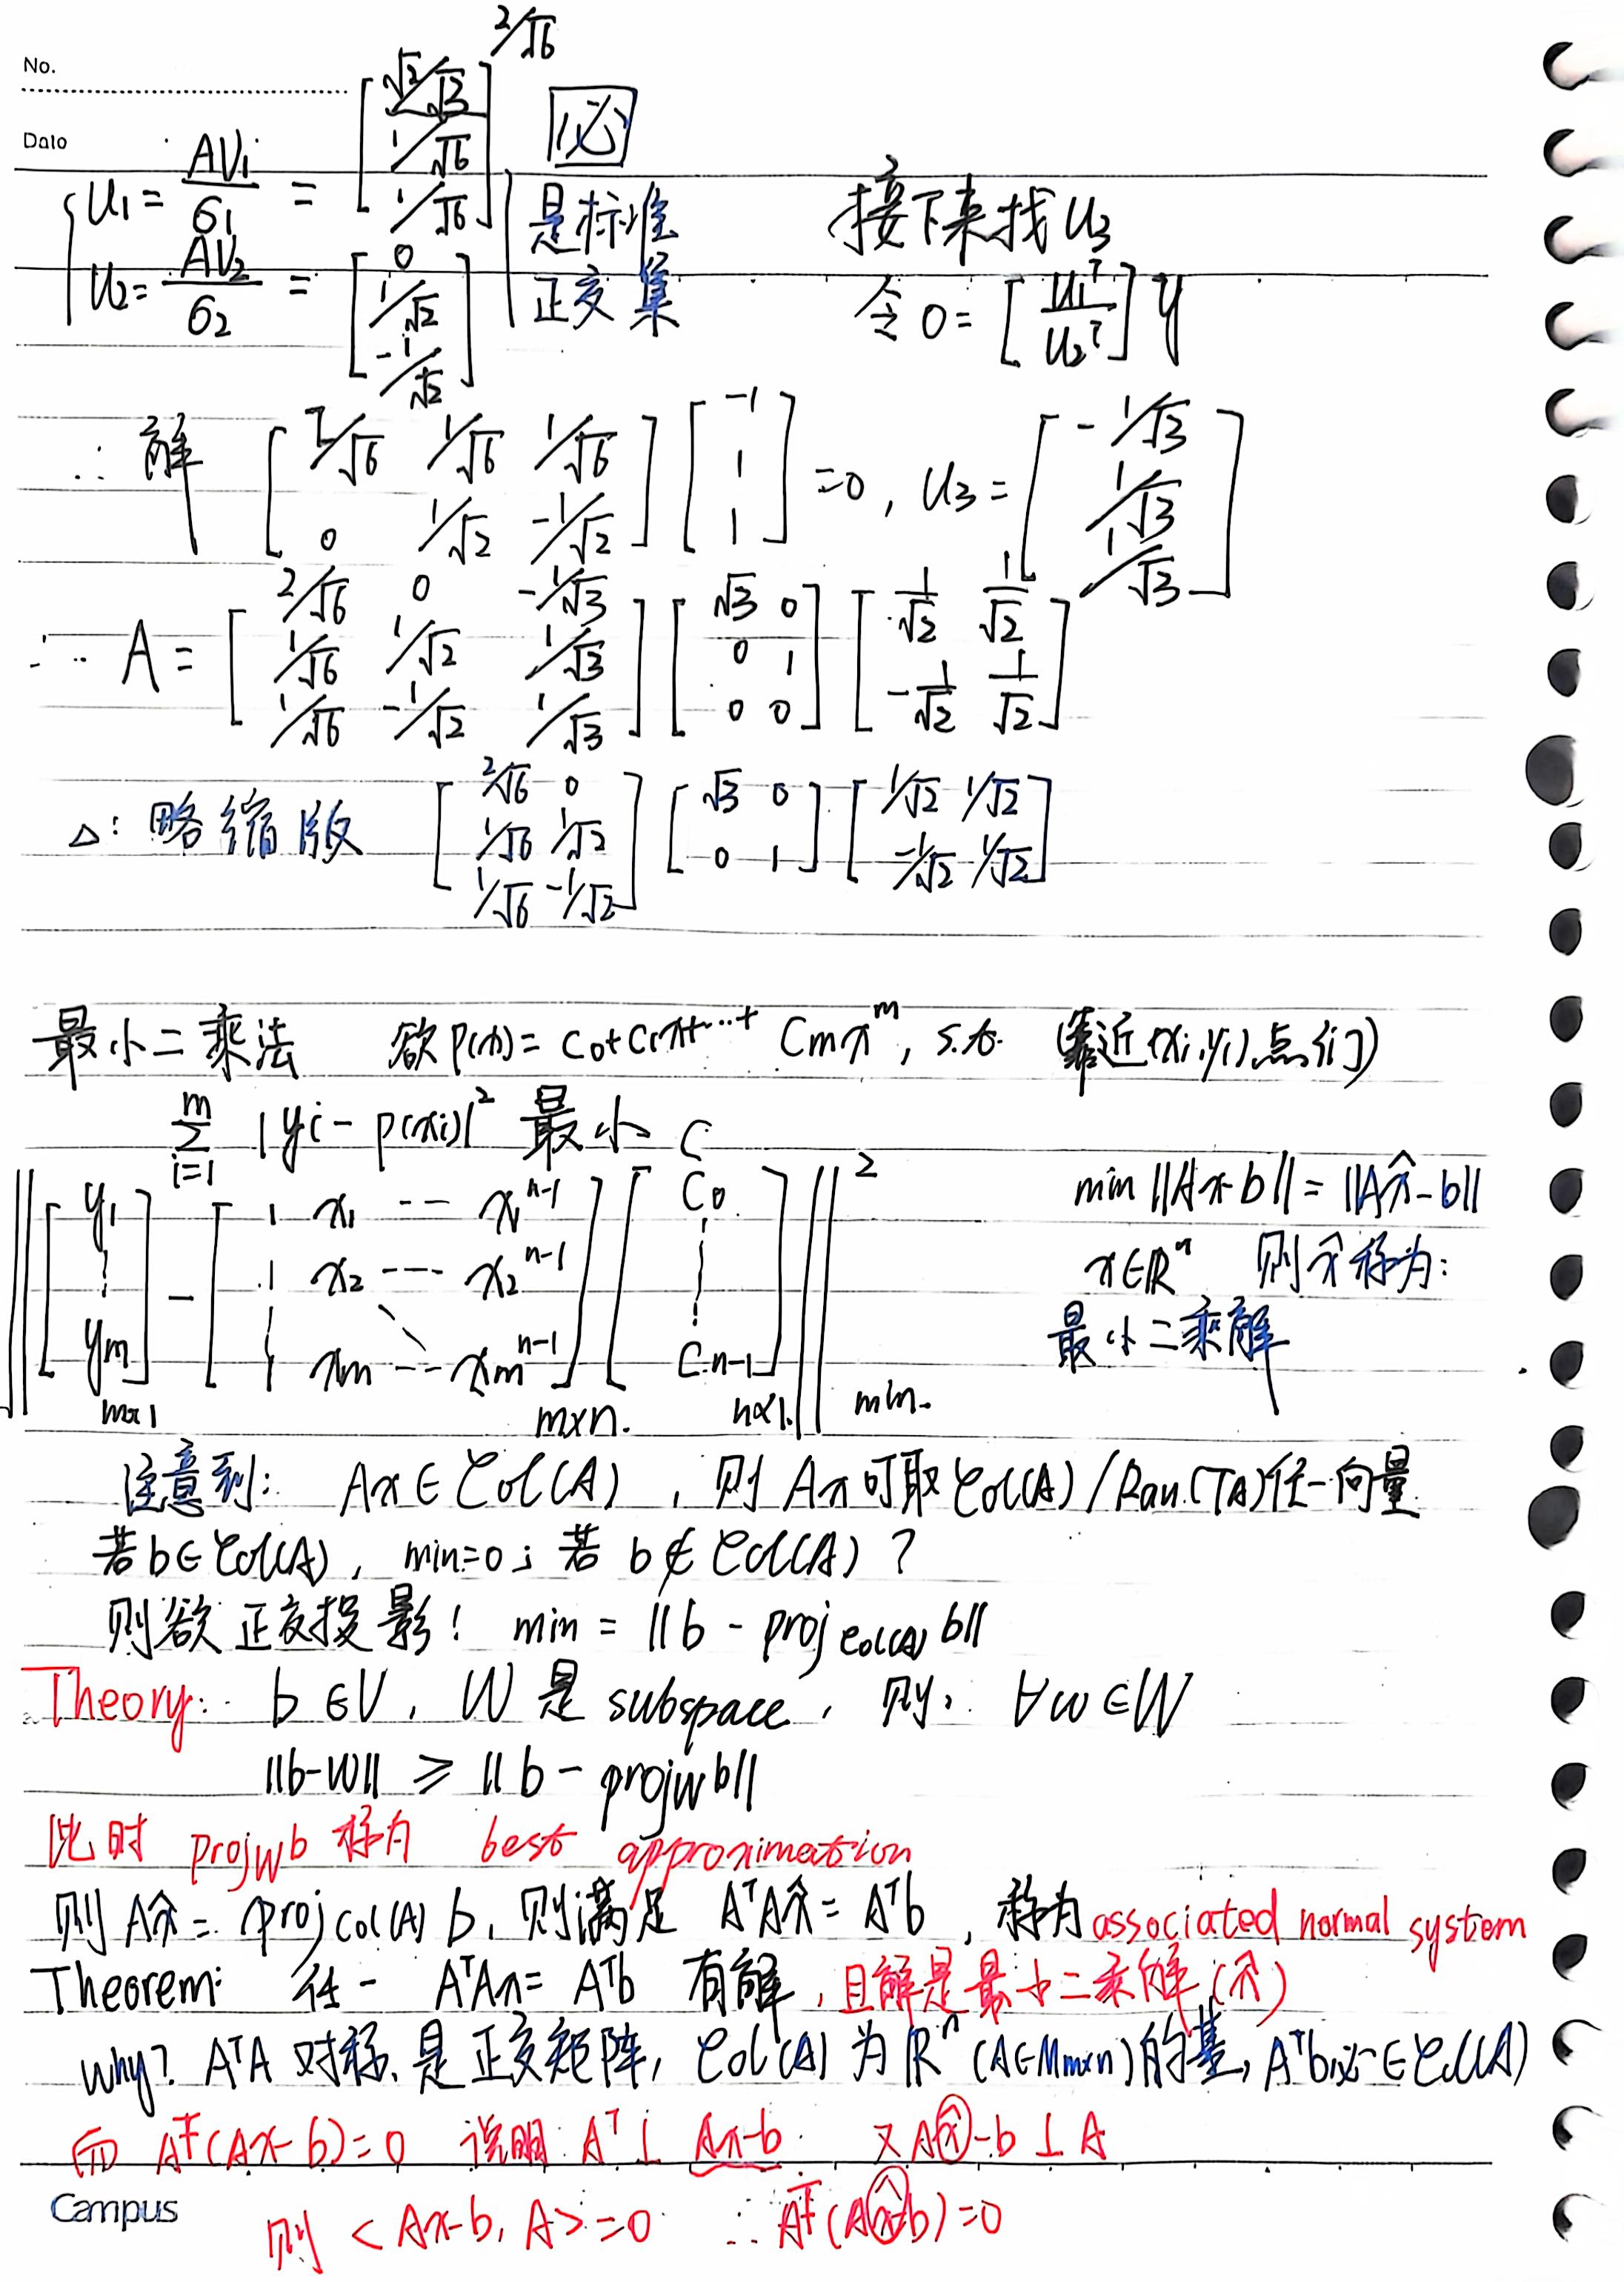 No.
Date
u₁ = Av₁/σ₁ = [√2/√3 1/√6 1/√6] 2/√6 必
u₂ = Av₂/σ₂ = [0 1/√2 -1/√2] 是标准正交集
接下来找 u₃
令 0 = [u₁ᵀ u₂ᵀ] y
∴ 解 [2/√6 1/√6 1/√6; 0 1/√2 -1/√2] [-1 1 1] = 0, u₃ = [-1/√3 1/√3 1/√3]
∴ A = [2/√6 0 -1/√3; 1/√6 1/√2 1/√3; 1/√6 -1/√2 1/√3] [√3 0; 0 1; 0 0] [1/√2 1/√2; -1/√2 1/√2]
△: 略缩版 [2/√6 0; 1/√6 1/√2; 1/√6 -1/√2] [√3 0; 0 1] [1/√2 1/√2; -1/√2 1/√2]
最小二乘法 欲 p(x) = c₀+c₁x+…+ cₘxᵐ, s.t. (靠近(xᵢ,yᵢ)点们)
∑ᵢ₌₁ᵐ |yᵢ - p(xᵢ)|² 最小 C
‖ [y₁ ⋮ yₘ] m×1 - [1 x₁ … x₁ⁿ⁻¹; 1 x₂ … x₂ⁿ⁻¹; ⋮ ⋱; 1 xₘ … xₘⁿ⁻¹] m×n. [c₀ ⋮ cₙ₋₁] n×1. ‖² min.
min ‖Ax-b‖ = ‖Ax̂-b‖
x∈ℝⁿ 则 x̂ 称为:
最小二乘解
注意到: Ax ∈ Col(A), 则 Ax 可取 Col(A) / Ran(T_A) 任一向量
若 b∈Col(A), min=0; 若 b∉Col(A)?
则欲正交投影! min = ‖b - proj_Col(A) b‖
Theory: b∈V, W 是 subspace, 则, ∀w∈W
‖b-w‖ ≥ ‖b - proj_W b‖
此时 proj_W b 称为 best approximation
则 Ax̂ = proj_Col(A) b, 则满足 AᵀAx̂ = Aᵀb, 称为 associated normal system
Theorem: 任一 AᵀAx = Aᵀb 有解, 且解是最小二乘解 (x̂)
why? AᵀA 对称, 是正交矩阵, Col(A) 为 ℝⁿ (A∈Mₘₓₙ) 的基, Aᵀb 必 ∈ Col(A)
而 Aᵀ(Ax-b)=0 说明 Aᵀ ⊥ Ax-b 又 Ax̂-b ⊥ A
则 <Ax-b, A> = 0 ∴ Aᵀ(Ax̂-b)=0
Campus